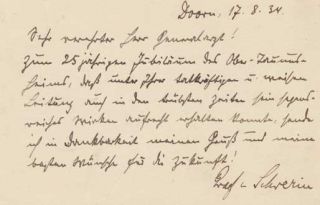 Doorn, 17. 8. 34
Sehr verehrter Herr Generalarzt!
Zum 25 jährigen Jubiläum des Ober-Taunus-
heims, daß unter Ihrer tatkräftigen u. weisen
Leitung auch in den trübsten Zeiten sein segens-
reiches Wirken aufrecht erhalten konnte, sende
ich in Dankbarkeit meinen Gruß und meine
besten Wünsche für die Zukunft!
Graf v. Schwerin